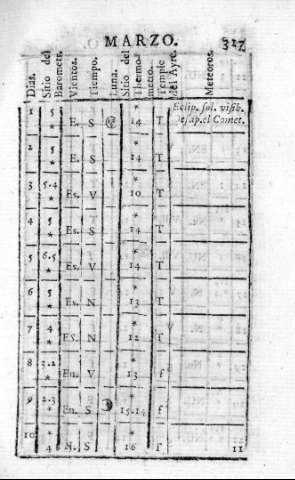 MARZO. 317
Dias. Sitio del Barometr. Vientos. Tiempo. Luna. Sitio del Thermometro. Temple del Ayre. Meteoros.
1 5 * E. S * 14 T Eclip. sol. visib. desap. el Comet.
2 5 * E. S * 14 T
3 5.4 * Es. V * 10 T
4 5 * Es. S * 14 T
5 6.5 * Es. V * 14 T
6 5 * Es. N * 13 T
7 4 * ES. N * 12 f
8 2.2 * En. V * 13 f
9 2.3 * En. S * 15.14 f
10 * 4 N. S * 16 f 11